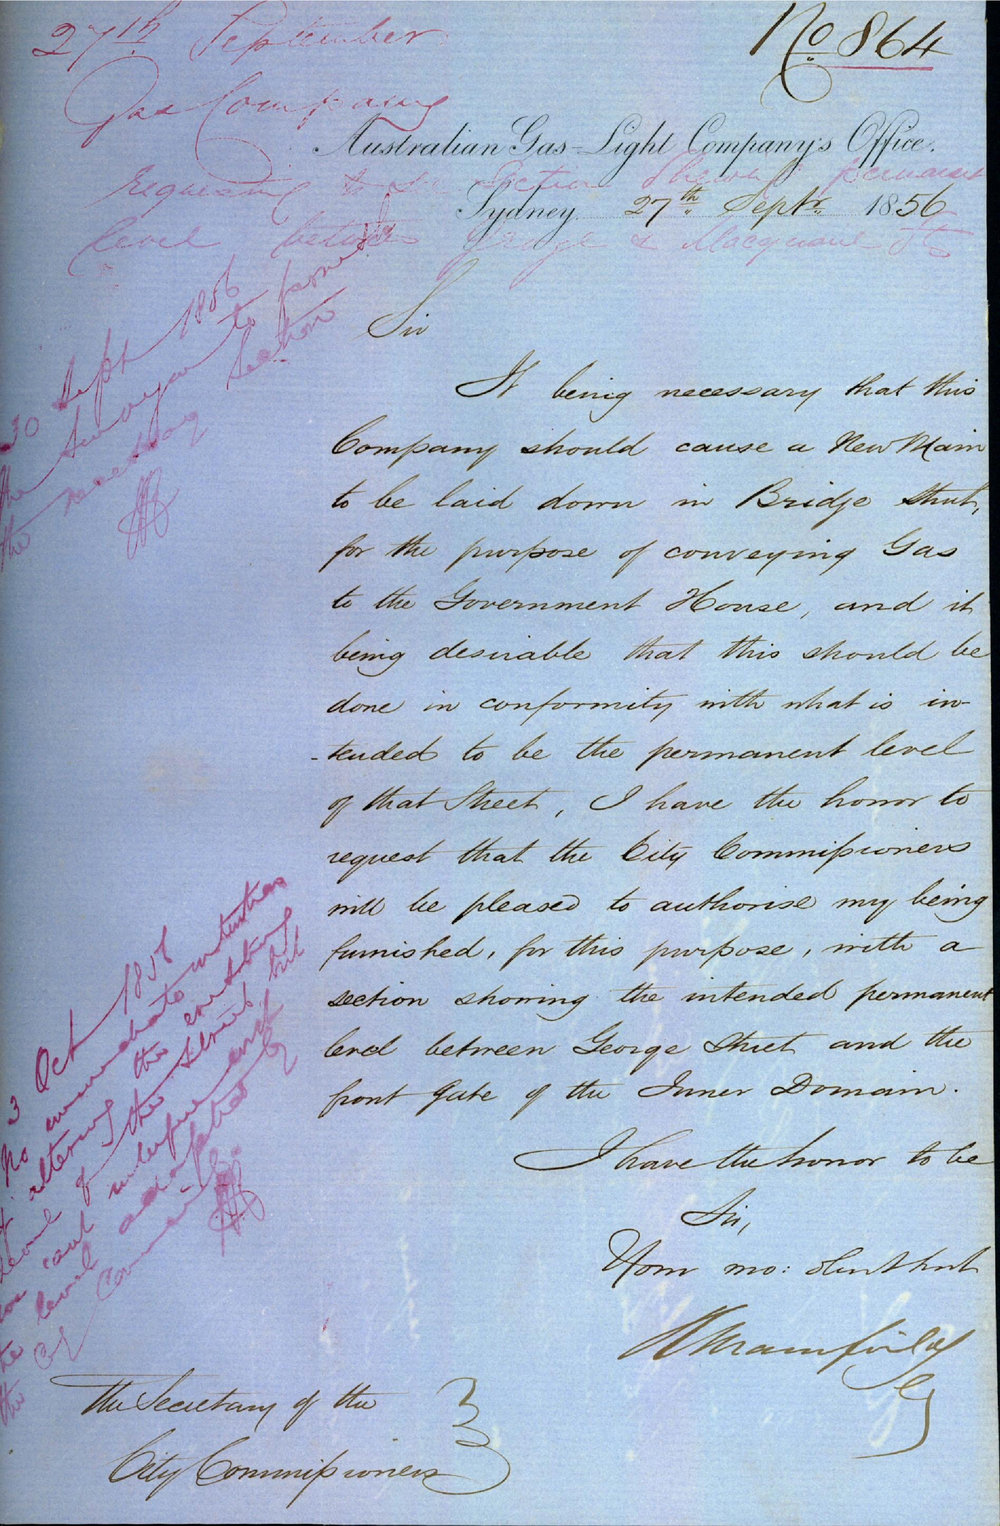 27th September
No 864
Gas Company
Australian Gas-Light Company's Office.
requesting section shewing permanent
Sydney 27th Septr 1856
level between George & Macquarie Sts
30 Septr 1856
the Surveyor to furnish
the necessary section
Sir
It being necessary that this
Company should cause a New Main
to be laid down in Bridge Street,
for the purpose of conveying Gas
to the Government House, and it
being desirable that this should be
done in conformity with what is in-
-tended to be the permanent level
of that Street, I have the honor to
request that the City Commissioners
will be pleased to authorise my being
furnished, for this purpose, with a
section showing the intended permanent
level between George Street and the
front Gate of the Inner Domain.
I have the honor to be
Sir,
Your mo: obent Servt
Secy
3 Oct 1856
No immediate intention
of altering the existing
level of the street but
the level adopted by
the City Commissrs
The Secretary of the
City Commissioners